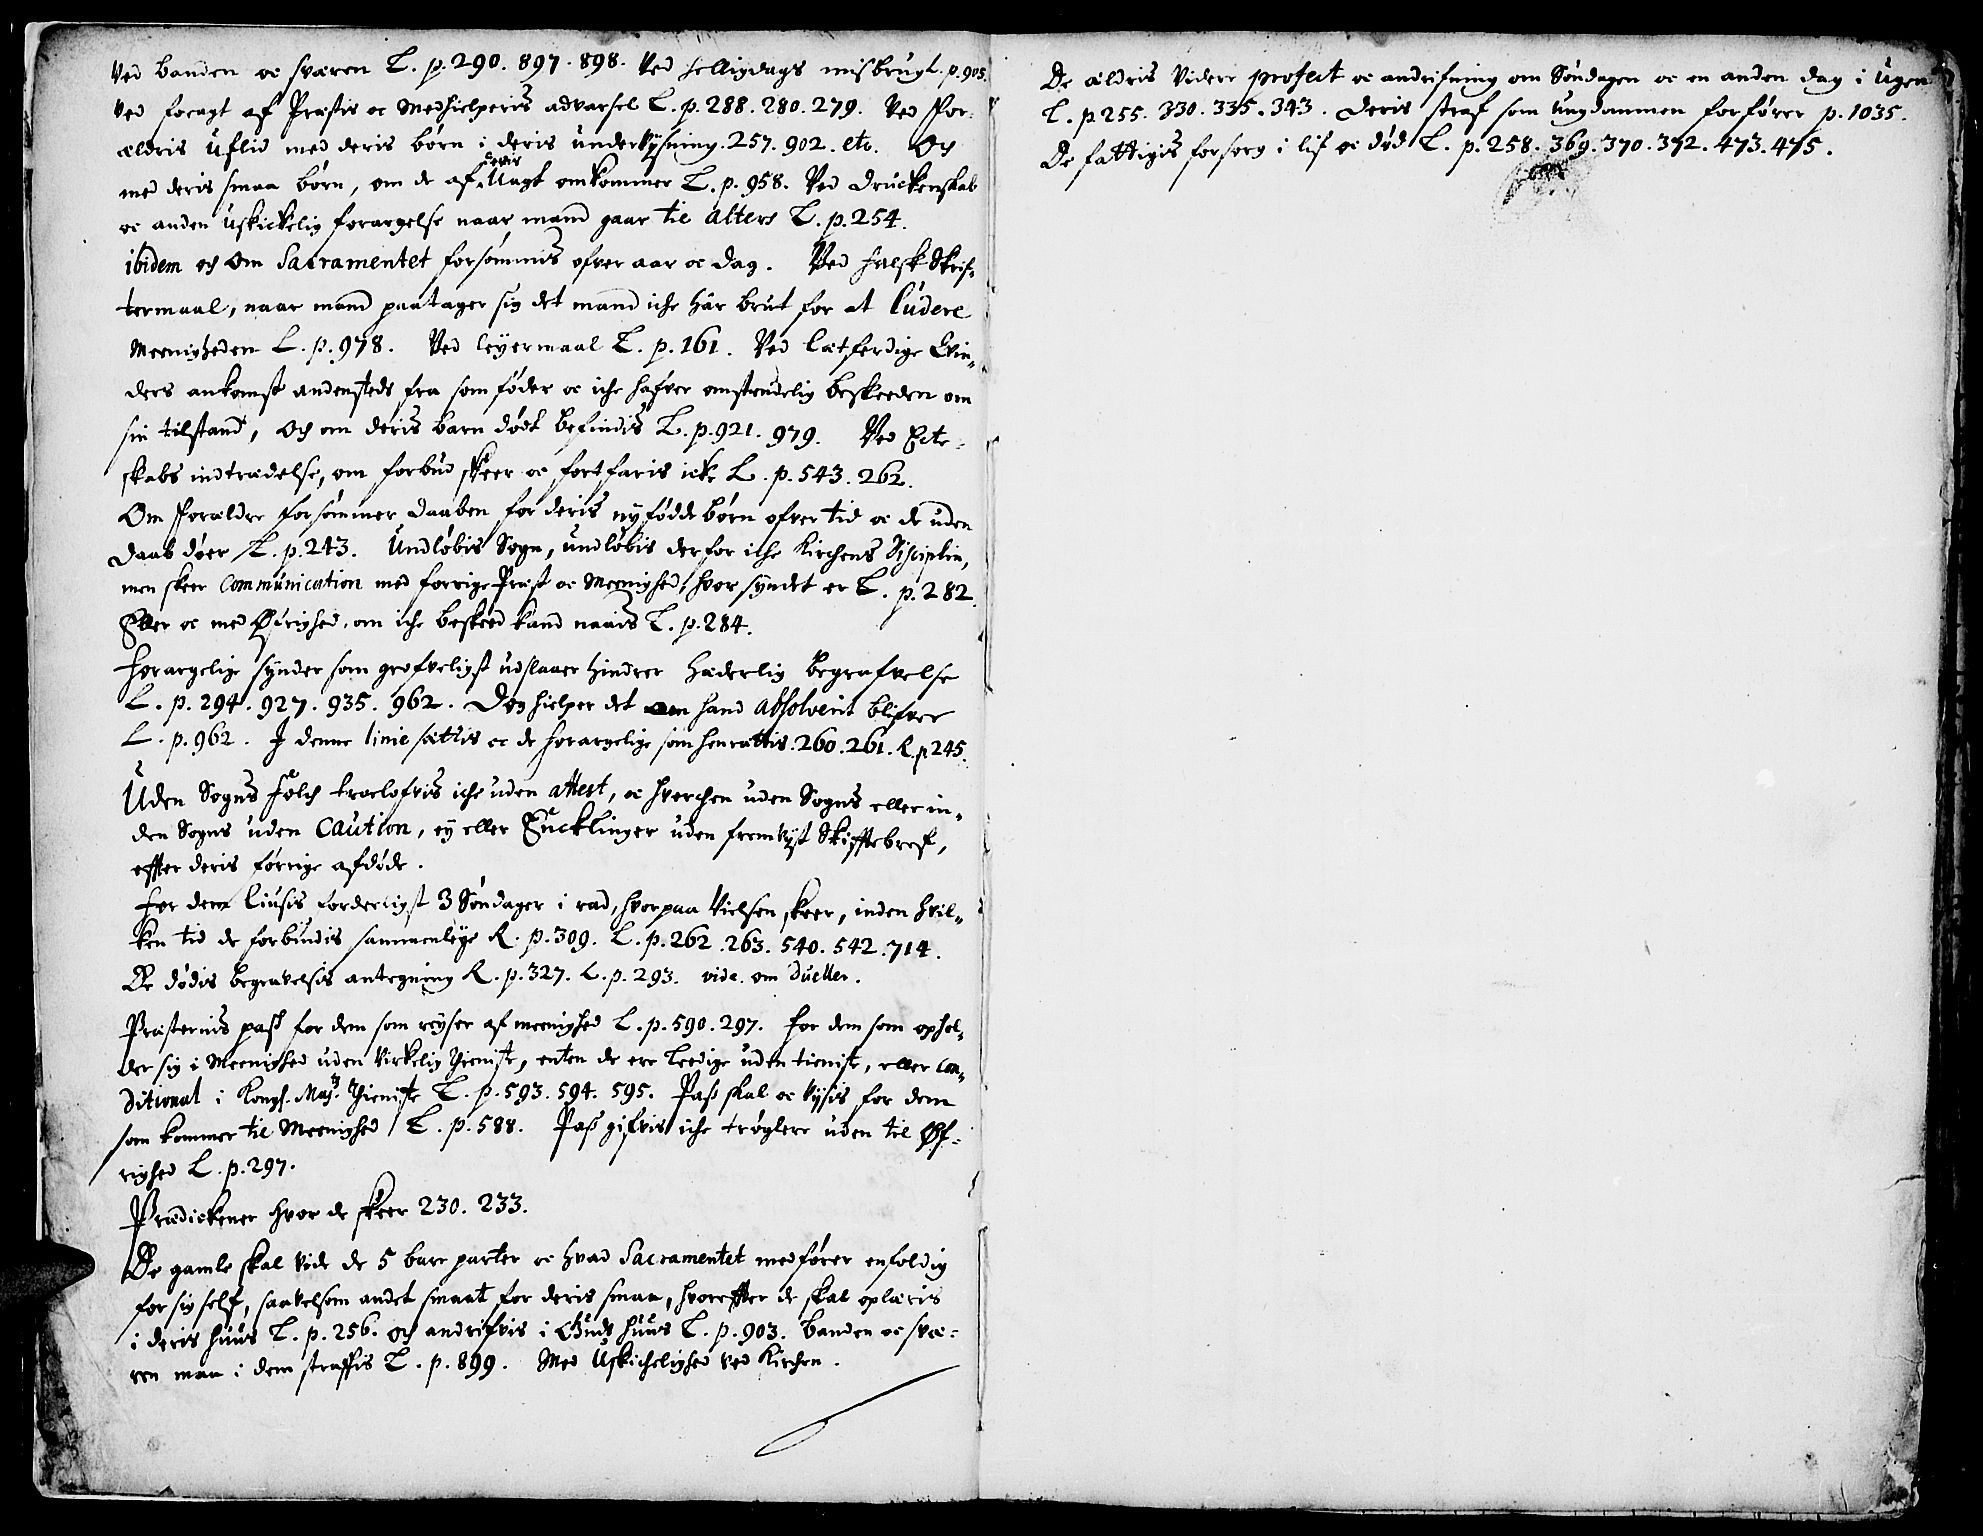 Ved banden oc sværen L. p. 290. 897. 898. Ved helligdags misbrug L. p. 905.
Ved foragt af Præstis oc Medhielperis advarsel L. p. 288. 280. 279. Ved For-
ældris Uflid med deris børn i deris undervysning. 257. 902. etc. Och
med deris smaa børn, om de af deris Uagt omkommer L. p. 958. Ved Druckenskab
oc anden Uskickelig forargelse naar mand gaar til Alters L. p. 254.
ibidem och Om Sacramentet forsømmis ofver aar oc dag. Ved falsk Skrif-
termaal, naar mand paatager sig det mand iche har brut for at ludere
Meenigheden L. p. 978. Ved leyermaal L. p. 161. Ved Letferdige Qvin-
ders ankomst andensteds fra som føder oc iche hafver omstendelig beskeeden om
sin tilstand, Och om deris barn dødt befindis L. p. 921. 979. Ved Ecte-
skabs indtrædelse, om forbud skeer oc fortfaris icke L. p. 543. 262.
Om Forældre forsømmer Daaben for deris nyfødde børn ofver tid oc de uden
Daab døer L. p. 243. Undløbis Sogn, undløbis derfor iche Kirchens Disciplin,
men skeer Communication med forrige Præst oc Meenighed, hvor syndet er L. p. 282.
Eller oc med Øfrighed, om iche beskeed kand naais L. p. 284.
Forargelige synder som grofveligst udslaaer hindrer hæderlig begrafvelse
L. p. 294. 927. 935. 962. Dog hielper det om hand absolverit blifver
L. p. 962. I denne linie sættis oc de forargelige som henrættis. 260. 261. R. p 245.
Uden Sogns Folch trolofvis iche uden attest, oc hverchen uden Sogns eller in-
den Sogns uden Caution, ey eller Encklinger uden fremvyst Skifftebref,
effter deris forrige afdøde.
For dem liusis forderligst 3 Søndager i rad, hvorpaa Vielsen skeer, inden hvil-
ken tid de forbindis sammenleye R. p. 309. L. p. 262. 263. 540. 542. 714.
De dødis begravelsis antegning R. p. 327. L. p. 293. vide om Dueller.
Præsternis pass for dem som reyser af meenighed L. p. 590. 297. For dem som ophol-
der sig i Meenighed uden Virkelig Thieniste, enten de ere Leedige uden tieniste, eller Con-
ditional i Kongl. Majts Thieniste L. p. 593. 594. 595. Pass skal oc Vysis for dem
som kommer til Meenighed L. p. 588. Pass gifvis iche trøglere uden til Øf-
righed L. p. 297.
Prædickener hvor de skeer 230. 233.
De gamle skal vide de 5 bare parter oc hvad Sacramentet medfører enfoldig
for sig self, saavelsom andet smaat for deris smaa, hvoreffter de skal oplæris
i deris huus L. p. 256. Och andrifvis i Guds huus L. p. 903. Banden oc svæ-
ren maa i dem straffis L. p. 899. Med Uskichelighed ved Kirchen.
De ældris Videre profect oc andrifning om Søndagen oc en anden dag i Ugen
L. p 255. 330. 335. 343. Deris straf som ungdommen forfører p. 1035.
De fattigis forsorg i lif oc død L. p. 258. 369. 370. 372. 473. 475.